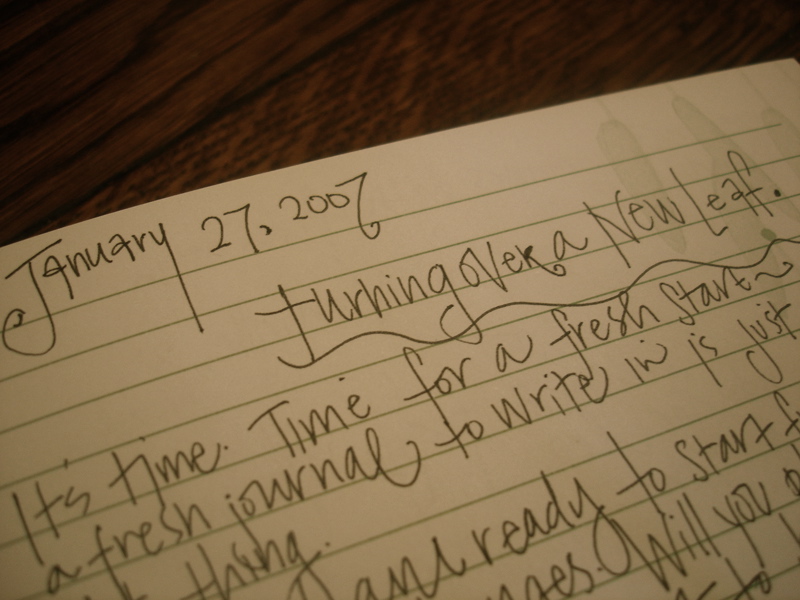 January 27, 2007
Turning over a New Leaf.
It's time. Time for a fresh start~
a fresh journal to write in is just
thing.
I am ready to start
Will you
to